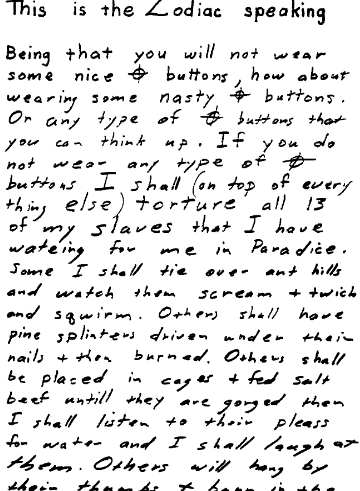 This is the Zodiac speaking
Being that you will not wear
some nice ⌖ buttons, how about
wearing some nasty ⌖ buttons.
Or any type of ⌖ buttons that
you can think up. If you do
not wear any type of ⌖
buttons I shall (on top of every
thing else) torture all 13
of my slaves that I have
wateing for me in Paradice.
Some I shall tie over ant hills
and watch them scream + twich
and sqwirm. Others shall have
pine splinters driven under their
nails + then burned. Others shall
be placed in cages + fed salt
beef untill they are gorged then
I shall listen to their pleass
for water and I shall laugh at
them. Others will hang by
their thumbs + burn in the